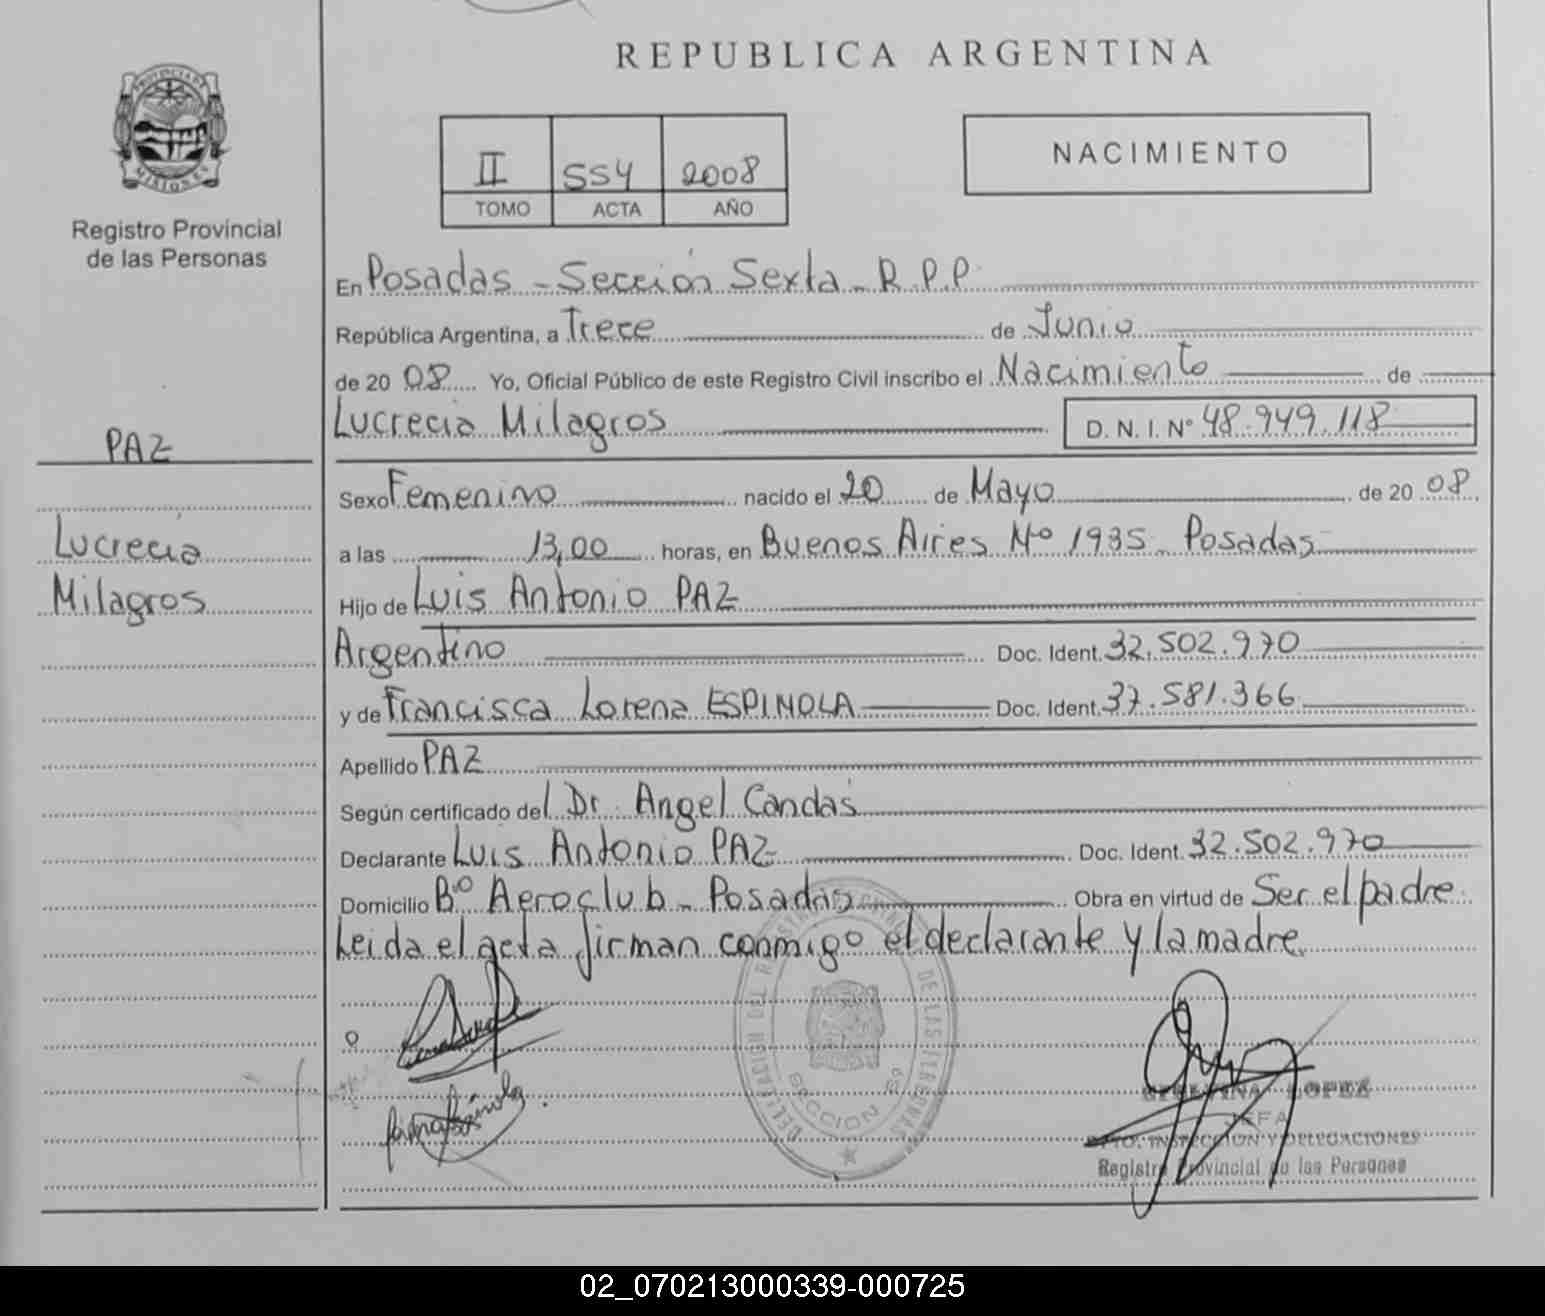 REPUBLICA ARGENTINA
PROVINCIA DE
MISIONES
Registro Provincial
de las Personas
II 554 2008
TOMO ACTA AÑO
NACIMIENTO
En Posadas - Sección Sexta - R.P.P.
República Argentina, a Trece de Junio
de 20 08 Yo, Oficial Público de este Registro Civil inscribo el Nacimiento de
Lucrecia Milagros D. N. I. Nº 48.949.118
PAZ
Lucrecia
Milagros
Sexo Femenino nacido el 20 de Mayo de 20 08
a las 13,00 horas, en Buenos Aires Nº 1935 - Posadas
Hijo de Luis Antonio PAZ
Argentino Doc. Ident. 32.502.970
y de Francisca Lorena ESPINOLA Doc. Ident. 37.581.366
Apellido PAZ
Según certificado del Dr. Angel Candas
Declarante Luis Antonio PAZ Doc. Ident. 32.502.970
Domicilio Bº Aeroclub - Posadas Obra en virtud de Ser el padre
Leida el acta firman conmigo el declarante y la madre.
DELEGACION DEL REGISTRO DE LAS PERSONAS
SECCION 6º
LOPEZ
JEFA
DPTO. INSPECCION Y DELEGACIONES
Registro Provincial de las Personas
02_070213000339-000725